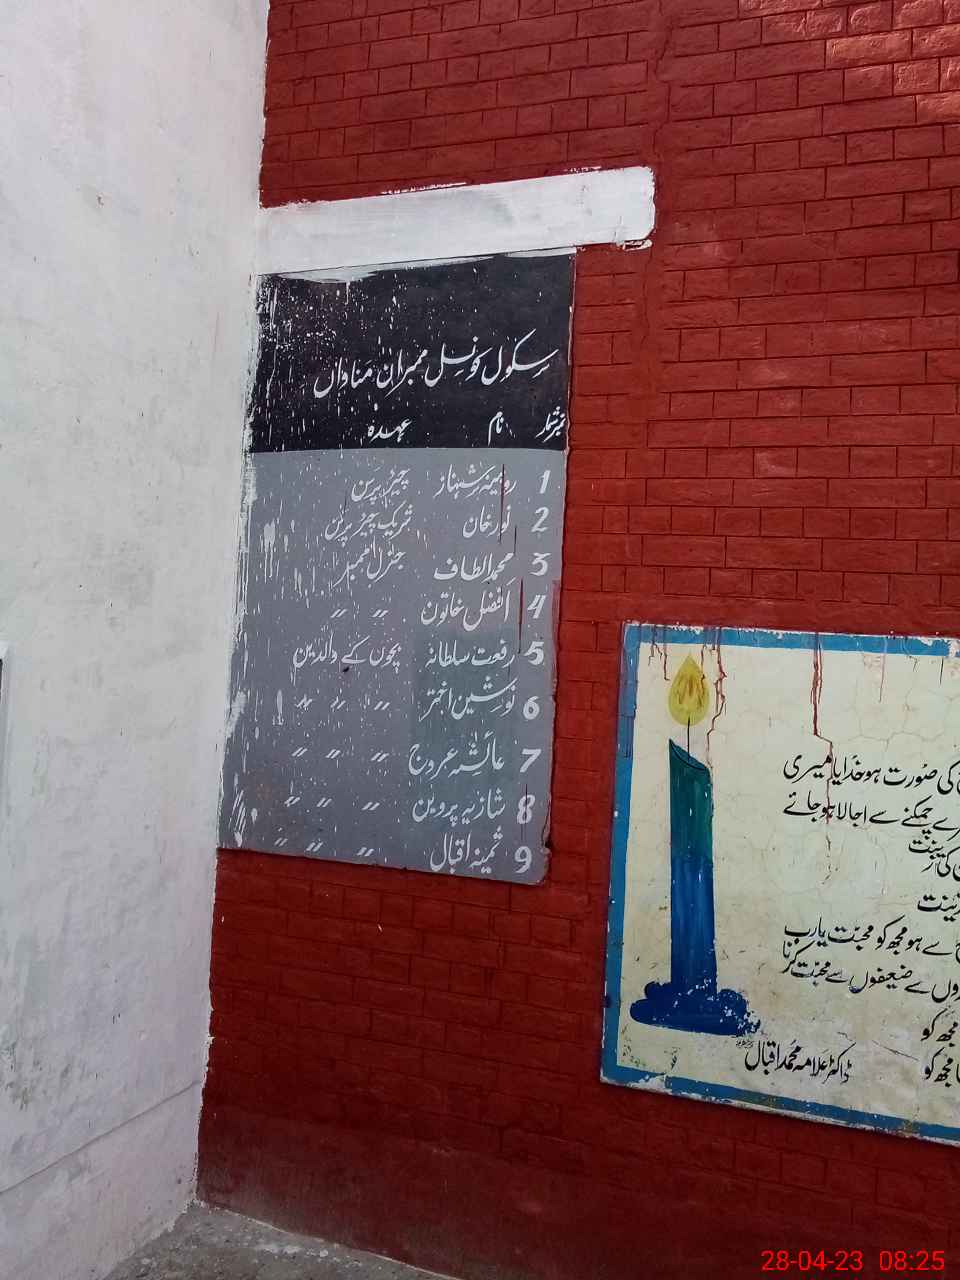 سکول کونسل ممبران مناواں
نمبر شمار نام عہدہ
1 روبینہ شہناز چیئر پرسن
2 نور خان شریک چیئر پرسن
3 محمد الطاف جنرل ممبر
4 افضل خاتون 〃 〃
5 رفعت سلطانہ بچوں کے والدین
6 نوشین اختر 〃 〃 〃
7 عائشہ عروج 〃 〃 〃
8 شازیہ پروین 〃 〃 〃
9 ثمینہ اقبال 〃 〃 〃
کی صورت ہو خدایا میری
چمکنے سے اجالا ہو جائے
کی زینت
زینت
سے ہو مجھ کو محبت یارب
سے ضعیفوں سے محبت کرنا
مجھ کو
مجھ کو
ڈاکٹر علامہ محمد اقبال
28-04-23 08:25